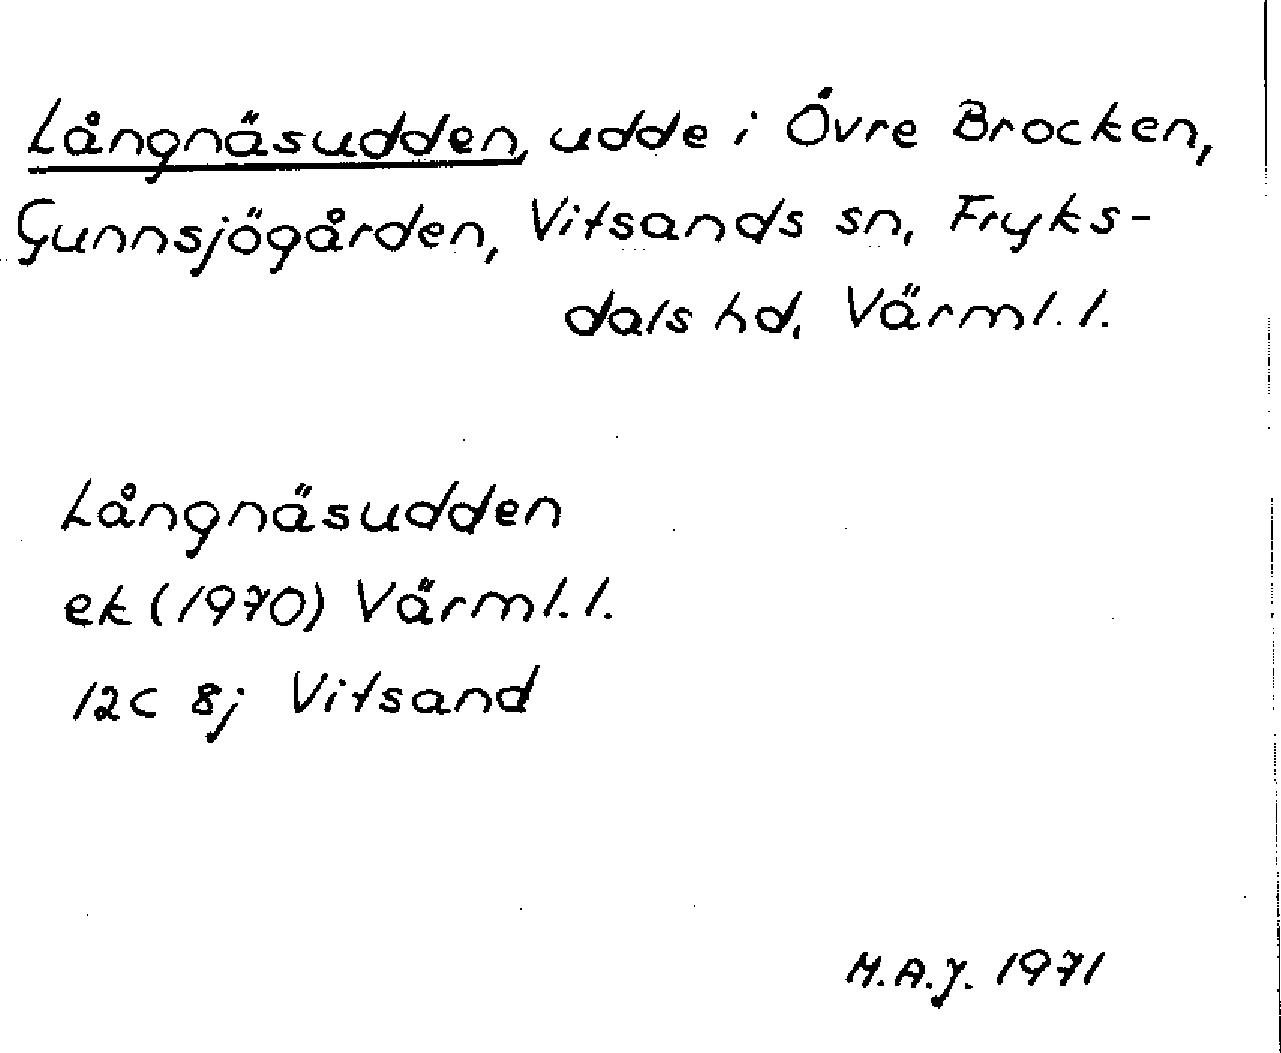 Långnäsudden, udde i Övre Brocken,
Gunnsjögården, Vitsands sn, Fryks-
dals hd, Värml. l.
Långnäsudden
ek (1970) Värml. l.
12C 8j Vitsand
M.A.J. 1971